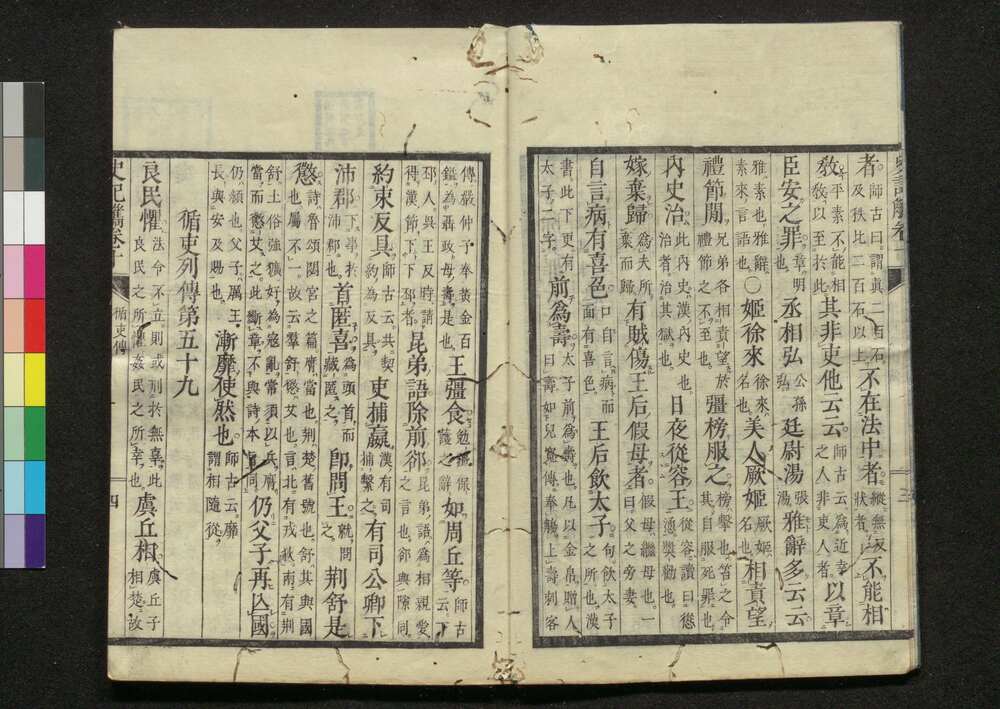 者師古曰謂眞二百石及秩比二百石以上不在法中者縱無反狀者不能相
教平素不能相教以至於此其非吏他云云師古云爲近幸之人非吏人者以章
臣安之罪章明丞相弘公孫弘廷尉湯張湯雅辭多云云
雅素也雅辭素來言語也○姬徐來徐來名也美人厥姬厥姬名也相責望
禮節閒兄弟各相責望於禮節之不至也彊榜服之榜擊也笞之令其自服死罪也
内史治此内史漢内史也治者治其獄也日夜從容王從容讀曰慫慂奬勸也
嫁棄歸爲夫所棄而歸有賊傷王后假母者假母繼母也一曰父之旁妻
自言病有喜色口自言病而面有喜色王后飲太子句飲太子之所也漢
書此下更有太子二字前爲壽太子前爲壽也凡以金帛贈人曰壽如兒寬傳奉觴上壽刺客
三
傳嚴仲子奉黄金百鎰爲聶政母壽是也王彊食勉彊保護之辭如周丘等師古云下
邳人呉王反時請得漢節下下邳者昆弟語除前郤昆弟語爲相親愛之言也郤與隙同
約束反具師古云共契約爲反具吏捕嬴漢有司捕繫之有司公卿下
沛郡下事於沛郡也首匿喜爲頭首而藏匿之即問王就問之荆舒是
懲詩魯頌閟宮之篇膺當也荆楚舊號也舒其與國也屬不一故云羣舒懲艾也言北有戎狄南有荆
舒土俗強獷好爲寇亂常須以兵膺當而懲艾之此斷章不與詩本旨同仍父子再亡國
仍頻也父子厲王長與安及賜也漸靡使然也師古云靡謂相隨從
循吏列傳第五十九
良民懼法令不立則或刑於無辜此良民之所懼姦民之所幸也虞丘相虞丘子相楚故
史記觽卷十 循吏傳 四